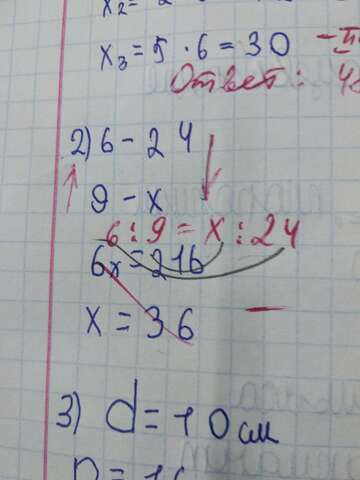 x₃ = 5 · 6 = 30
Ответ:
2) 6 - 24
9 - x
6 : 9 = x : 24
6x = 216
x = 36
3) d = 10 см